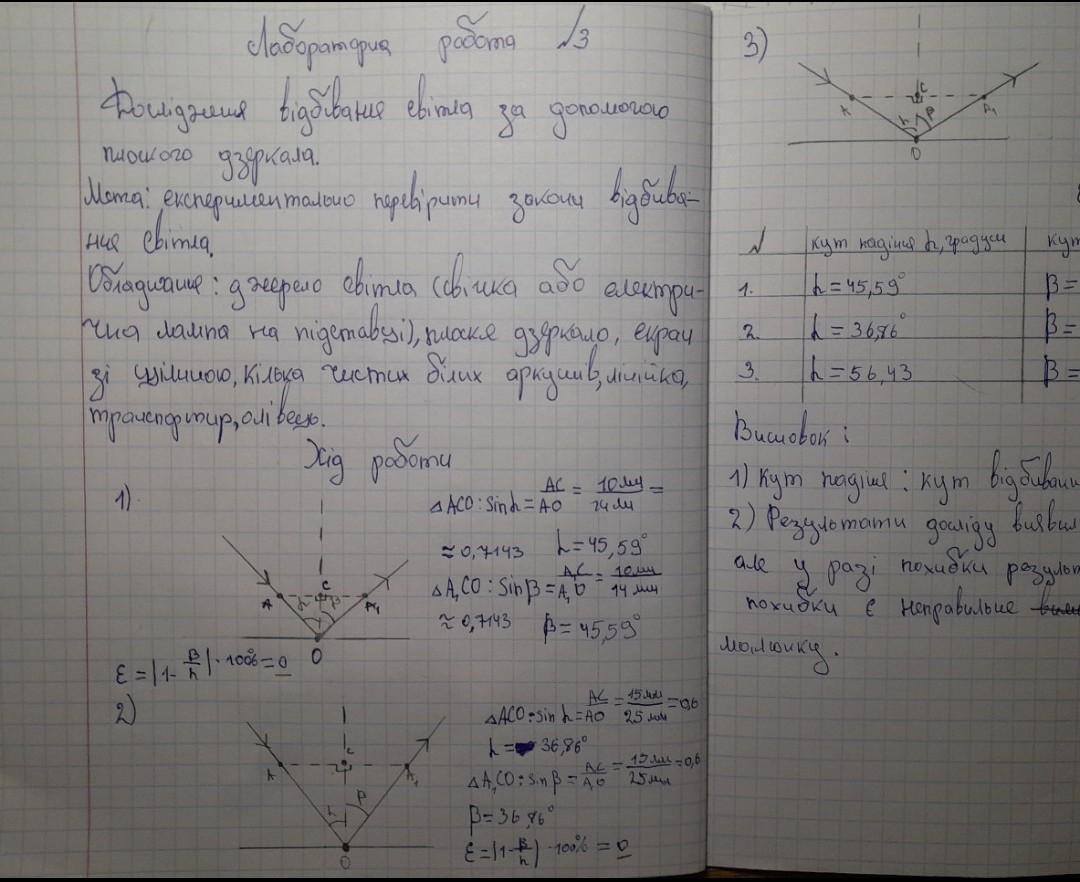 Лабораторна робота №3
Дослідження відбивання світла за допомогою
плоского дзеркала.
Мета: експериментально перевірити закони відбива-
ння світла.
Обладнання: джерело світла (свічка або електри-
чна лампа на підставці), плоске дзеркало, екран
зі щілиною, кілька чистих білих аркушів, лінійка,
транспортир, олівець.
Хід роботи
1)
A C A₁
α β
O
△ACO: sin α = AC/AO = 10мм/14мм =
≈ 0,7143 α = 45,59°
△A₁CO: sin β = A₁C/A₁O = 10мм/14мм
≈ 0,7143 β = 45,59°
ε = |1 - β/α| · 100% = 0
2)
A C A₁
α β
O
△ACO: sin α = AC/AO = 15мм/25мм = 0,6
α = 36,86°
△A₁CO: sin β = AC/AO = 15мм/25мм = 0,6
β = 36,86°
ε = |1 - β/α| · 100% = 0
3)
A C A₁
α β
O
№ кут падіння α, градуси кут
1. α = 45,59° β =
2. α = 36,86° β =
3. α = 56,43 β =
Висновок:
1) Кут падіння : кут відбиванн
2) Результати досліду виявил
але у разі похибки резуль
похибки є неправильне
малюнку.